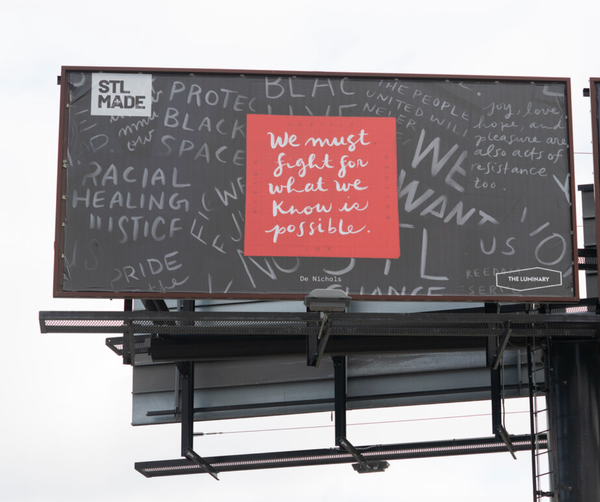 STL
MADE
PROTEC
BLACK
SPACE
BLAC
LIVE
THE PEOPLE
UNITED WILL
NEVER
joy, love,
hope, and
pleasure are
also acts of
resistance
too.
We must
fight for
what we
know is
possible.
RACIAL
HEALING
JUSTICE
WE
WANT
US
PRIDE
the
NO
STL
De Nichols
THE LUMINARY